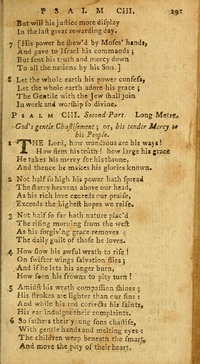 PSALM CIII. 191
But will his justice more display
In the last great rewarding day.
7 [His power he shew'd by Moses' hands,
And gave to Israel his commands;
But sent his truth and mercy down
To all the nations by his Son.]
8 Let the whole earth his power confess,
Let the whole earth adore his grace;
The Gentile with the Jew shall join
In work and worship so divine.
PSALM CIII. Second Part. Long Metre.
God's gentle Chastisement; or, his tender Mercy to
his People.
1 THE Lord, how wondrous are his ways!
How firm his truth! how large his grace
He takes his mercy for his throne,
And thence he makes his glories known.
2 Not half so high his power hath spread
The starry heavens above our head,
As his rich love exceeds our praise,
Exceeds the highest hopes we raise,
3 Not half so far hath nature plac'd
The rising morning from the west
As his forgiving grace removes
The daily guilt of those he loves.
4 How slow his awful wrath to rise!
On swifter wings salvation flies;
And if he lets his anger burn,
How soon his frowns to pity turn!
5 Amidst his wrath compassion shines;
His strokes are lighter than our sins:
And while his rod corrects his saints,
His ear indulges their complaints.
6 So fathers their young sons chastise,
With gentle hands and melting eyes:
The children weep beneath the smart,
And move the pity of their heart.